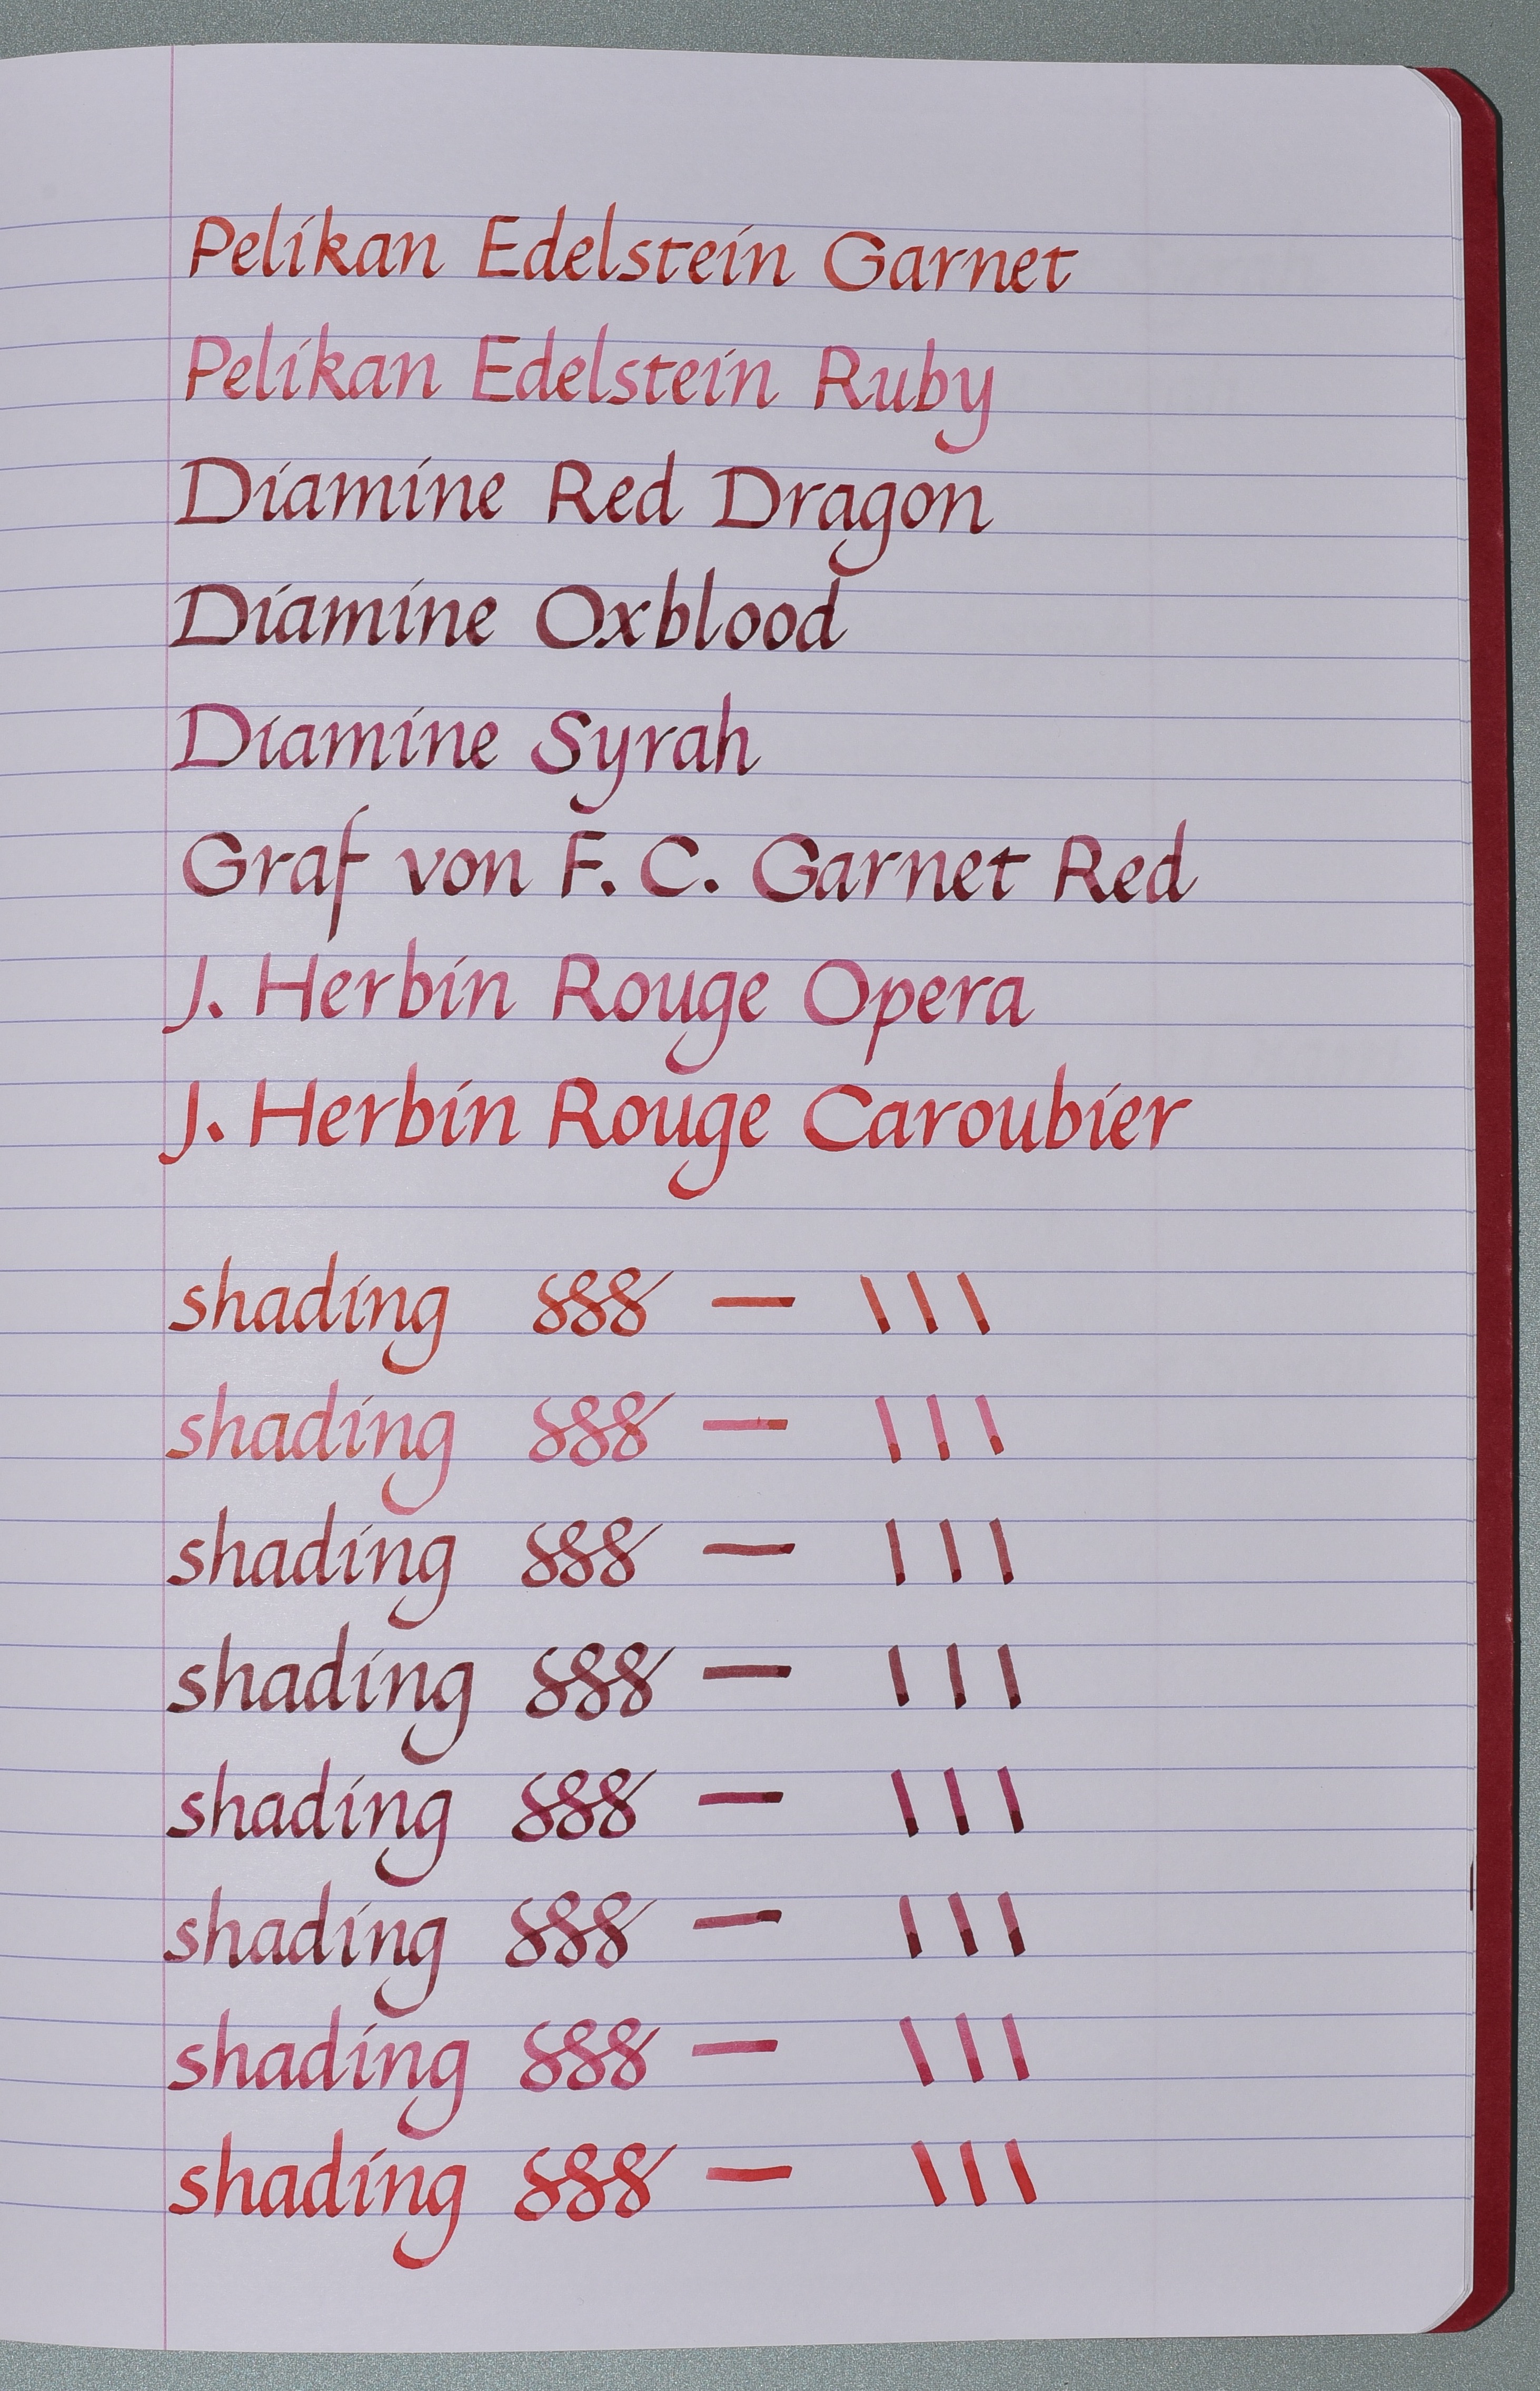 Pelikan Edelstein Garnet
Pelikan Edelstein Ruby
Diamine Red Dragon
Diamine Oxblood
Diamine Syrah
Graf von F. C. Garnet Red
J. Herbin Rouge Opera
J. Herbin Rouge Caroubier
shading 888 — \ \ \
shading 888 — \ \ \
shading 888 — \ \ \
shading 888 — \ \ \
shading 888 — \ \ \
shading 888 — \ \ \
shading 888 — \ \ \
shading 888 — \ \ \